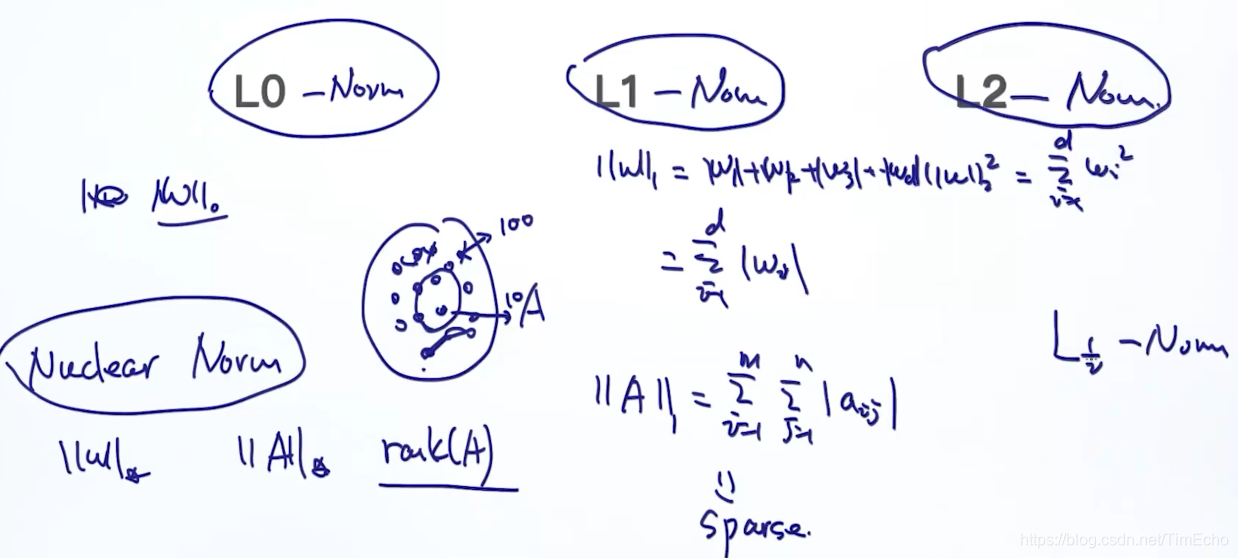 L0 – Norm
L1 – Norm
L2 – Norm
||w||₁ = |w₁|+|w₂|+|w₃|+··+|w_d|
||w||₂² = Σ_{i=1}^{d} wᵢ²
||w||₀
= Σ_{i=1}^{d} |wᵢ|
100
10
A
Nuclear Norm
L_{1/2} – Norm
||A||₁ = Σ_{i=1}^{m} Σ_{j=1}^{n} |a_{ij}|
||w||_* ||A||_* rank(A)
Sparse.
https://blog.csdn.net/TimEcho